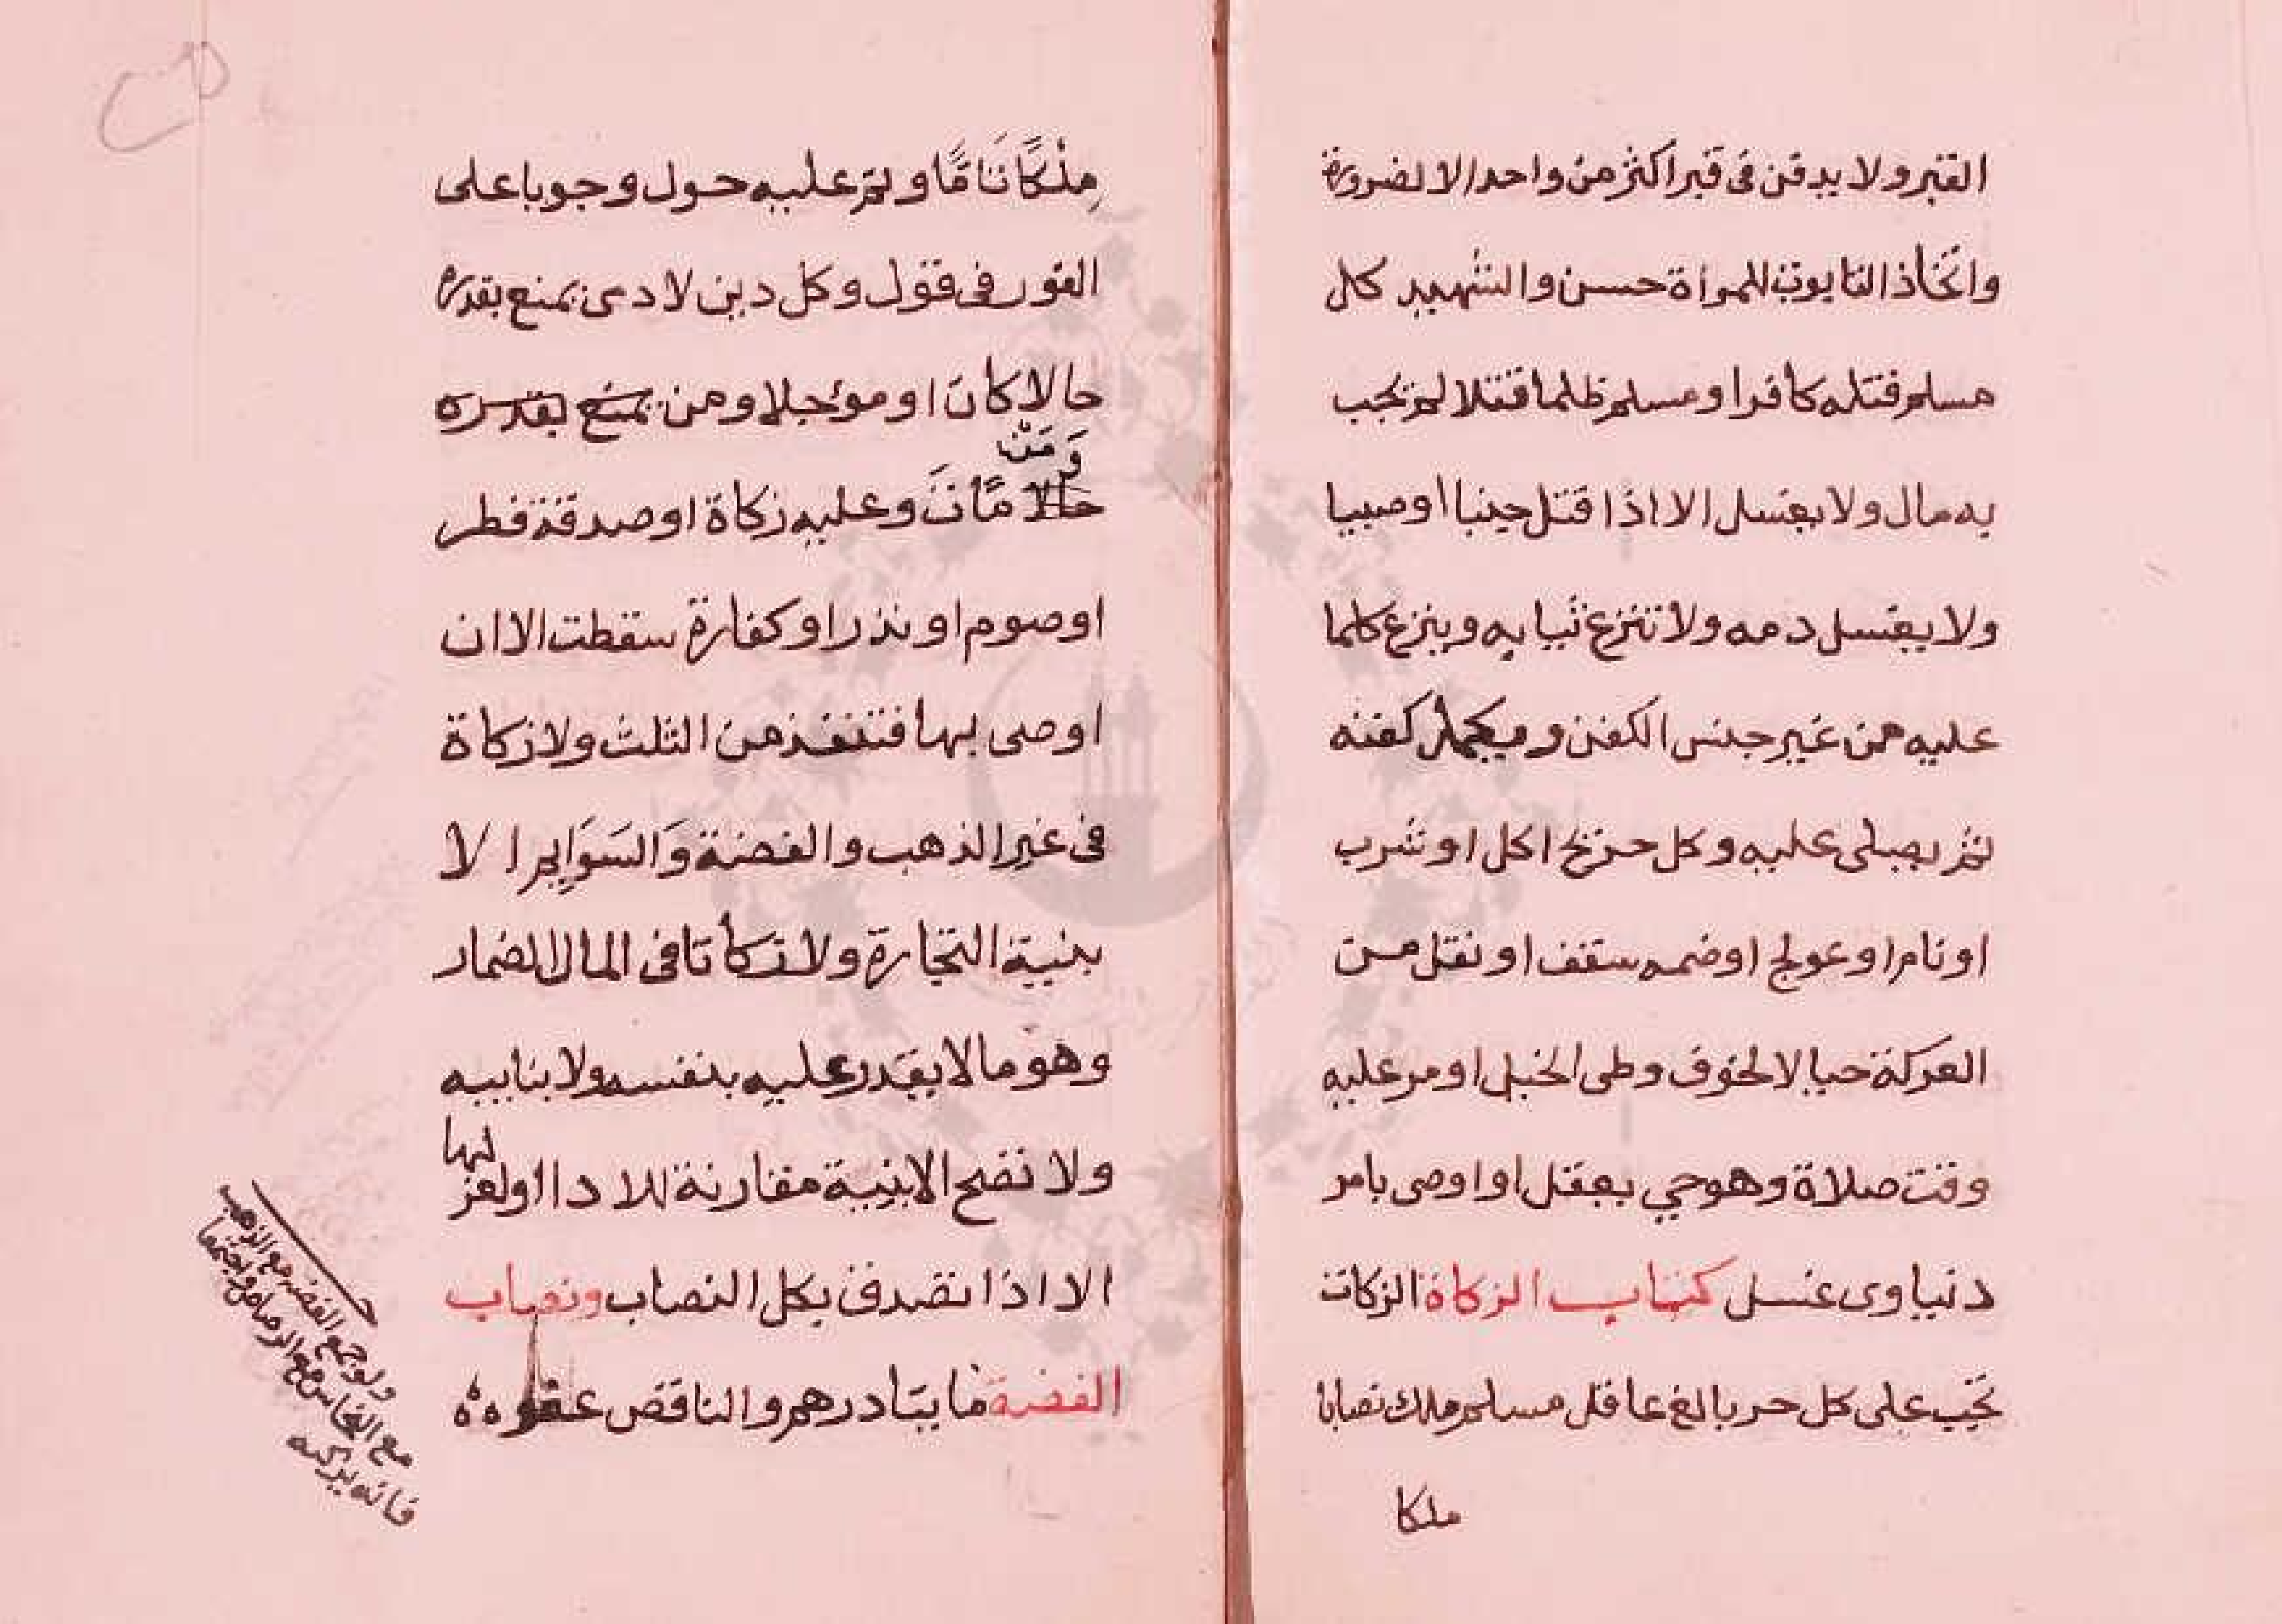 القبر ولا يدفن فى قبر اكثر من واحد الا لضرورة
واتخاذ التابوت للمرأة حسن والشهيد كل
مسلم قتله كافرا ومسلم ظلما قتلا لم تجب
به مال ولا يغسل الا اذا قتل جنبا او صبيا
ولا يغسل دمه ولا تنزع ثيابه وينزع كلما
عليه من غير جنس الكفن ويكمل كفنه
ثم يصلى عليه وكل جريح اكل او شرب
او نام او عولج او ضمه سقف او نقل من
المعركة حيا لا لخوف وطى الخيل او مر عليه
وقت صلاة وهو حي يعقل او اوصى بامر
دنياوى غسل كتاب الزكاة الزكات
تجب على كل حر بالغ عاقل مسلم ملك نصابا
ملكا
مِلْكًا تَامًّا وتم عليه حول وجوبا على
الفور فى قول وكل دين لادمى يمنع بقدره
حالا كان او موجلا ومن يمنع بقدره
وَمَنْ
حالا مَاتَ وعليه زكاة او صدقة فطر
او صوم او نذر او كفارة سقطت الا ان
اوصى بها فتنفذ من الثلث ولا زكاة
فى غير الذهب والفضة وَالسَوَايم الا
بنية التجارة ولا تكاتا فى المال الضمار
وهو مالا يقدر عليه بنفسه ولا بنايبه
ولا تصح الا بنية مقارنة للادا او لعز
لها
الا اذا تصدق بكل النصاب ونصاب
الفضة مايتا درهم والناقص عفو
ولو جمع الفضه مع الذهب
مع النحاس مع الرصاص
فانه يزكيه